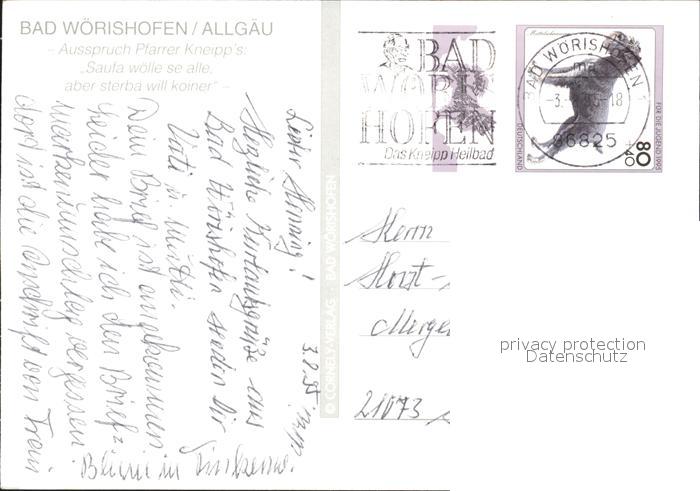 BAD WÖRISHOFEN / ALLGÄU
– Ausspruch Pfarrer Kneipp's:
„Saufa wölle se alle,
aber sterba will koiner" –
Lieber Henning!
Herzliche Kurlaubsgrüße aus
Bad Wörishofen senden Dir
Vati u. Mutti.
Dein Brief ist angekommen
Leider habe ich den Brief=
markenumschlag vergessen
dort ist die Anschrift von Frau
Blum in
© CORNELY-VERLAG · BAD WÖRISHOFEN
BAD
WÖRIS
HOFEN
Das Kneipp Heilbad
BAD WÖRISHOFEN 1
-18
86825
DEUTSCHLAND
FÜR DIE JUGEND 1995
80
+40
Herrn
Horst-
21073
privacy protection
Datenschutz